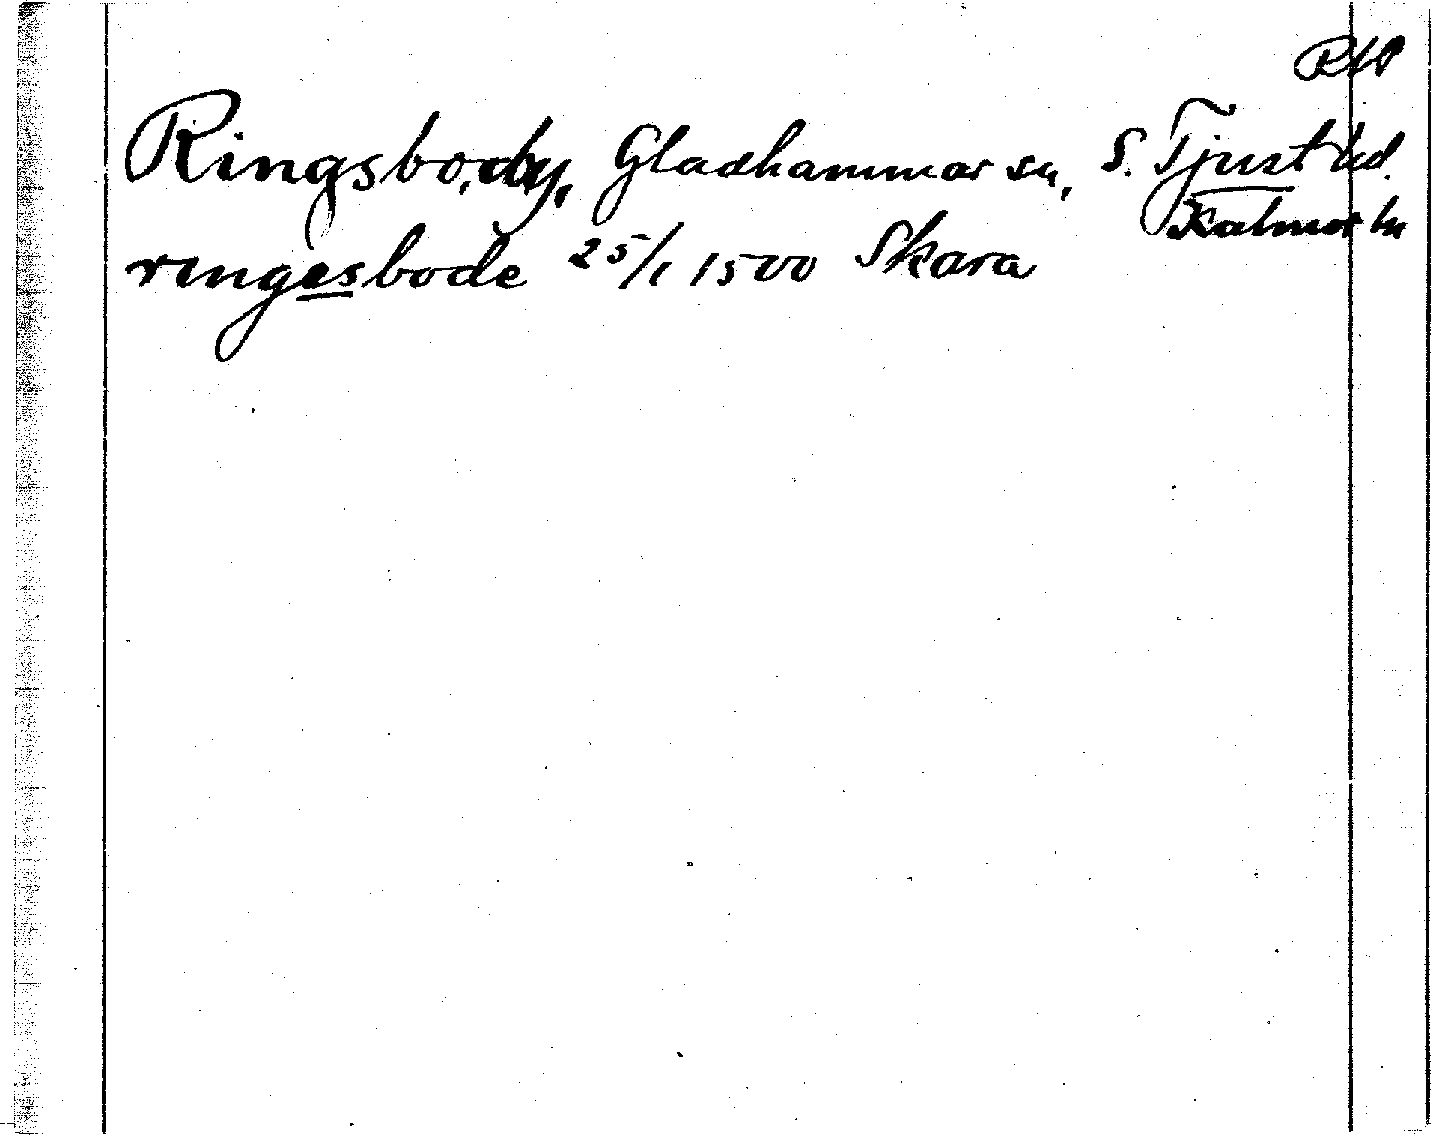 Ringsbo, by, Gladhammar sn, S. Tjust hd.
Kalmar ln
ringesbode 25/1 1500 Skara